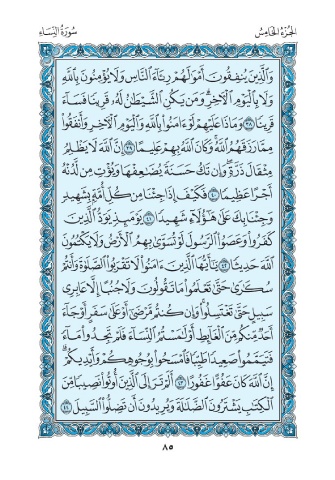 الجزء الخامس
سورة النساء
والذين ينفقون أموالهم رئاء الناس ولا يؤمنون بالله
ولا باليوم الآخر ومن يكن الشيطان له قرينا فساء
قرينا ٣٨ وماذا عليهم لو ءامنوا بالله واليوم الآخر وأنفقوا
مما رزقهم الله وكان الله بهم عليما ٣٩ إن الله لا يظلم
مثقال ذرة وإن تك حسنة يضاعفها ويؤت من لدنه
أجرا عظيما ٤٠ فكيف إذا جئنا من كل أمة بشهيد
وجئنا بك على هؤلاء شهيدا ٤١ يومئذ يود الذين
كفروا وعصوا الرسول لو تسوى بهم الأرض ولا يكتمون
الله حديثا ٤٢ يأيها الذين ءامنوا لا تقربوا الصلوة وأنتم
سكارى حتى تعلموا ما تقولون ولا جنبا إلا عابري
سبيل حتى تغتسلوا وإن كنتم مرضى أو على سفر أو جاء
أحد منكم من الغائط أو لامستم النساء فلم تجدوا ماء
فتيمموا صعيدا طيبا فامسحوا بوجوهكم وأيديكم
إن الله كان عفوا غفورا ٤٣ ألم تر إلى الذين أوتوا نصيبا من
الكتاب يشترون الضلالة ويريدون أن تضلوا السبيل ٤٤
٨٥